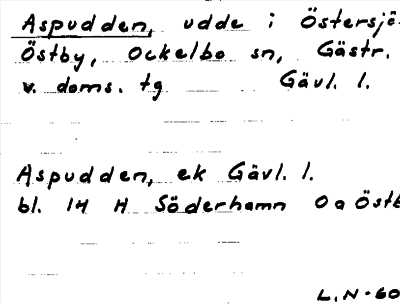 Aspudden, udde i Östersjö
Östby, Ockelbo sn, Gästr.
v. doms. tg Gävl. l.
Aspudden, ek Gävl. l.
bl. 14 H Söderhamn 0a Östb
L.N-60